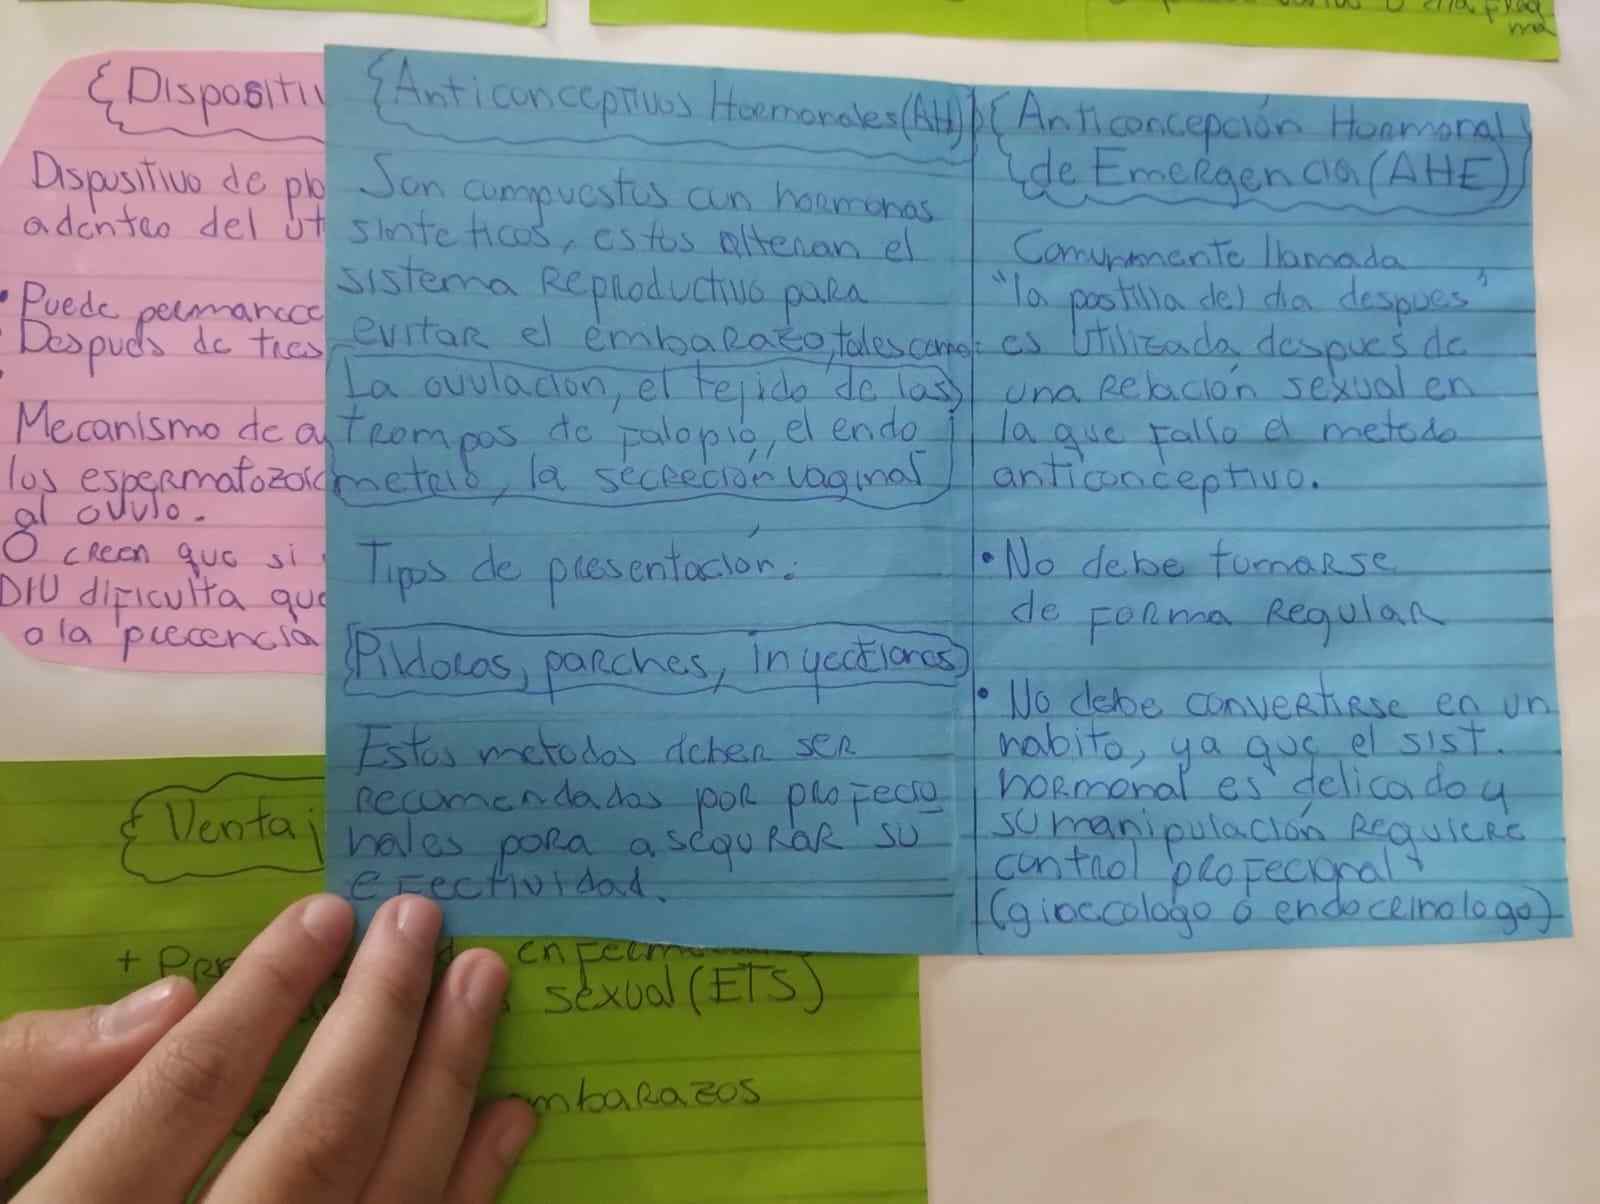 ma
{Dispositiv
Dispositivo de plo
adentro del út
• Puede permanece
Despues de tres
Mecanismo de a
los espermatozoid
al ovulo.
O creen que si
DIU dificulta que
o la precencia
{Anticonceptivos Hormonales (AH)}
Son compuestos con hormonas
sinteticos, estos alteran el
sistema Reproductivo para
evitar el embarazo, tales como:
La ovulación, el tejido de las
trompas de Falopio, el endo
metrio, la secreción vaginal
Tipos de presentación:
Pildoras, parches, inyectiones
Estos metodos deben ser
recomendados por profecio
nales para asegurar su
efectividad.
{Anticoncepción Hormonal
de Emergencia (AHE)}
Comunmente llamada
"la pastilla del dia despues"
es utilizada despues de
una Relación sexual en
la que Fallo el metodo
anticonceptivo.
• No debe tomarse
de Forma Regular
• No debe convertirse en un
habito, ya que el sist.
hormonal es delicado y
su manipulación Requiere
control profecional
(gineccologo o endocrinologo)
{Ventaj
+ Pre
enferme
sexual (ETS)
mbarazos